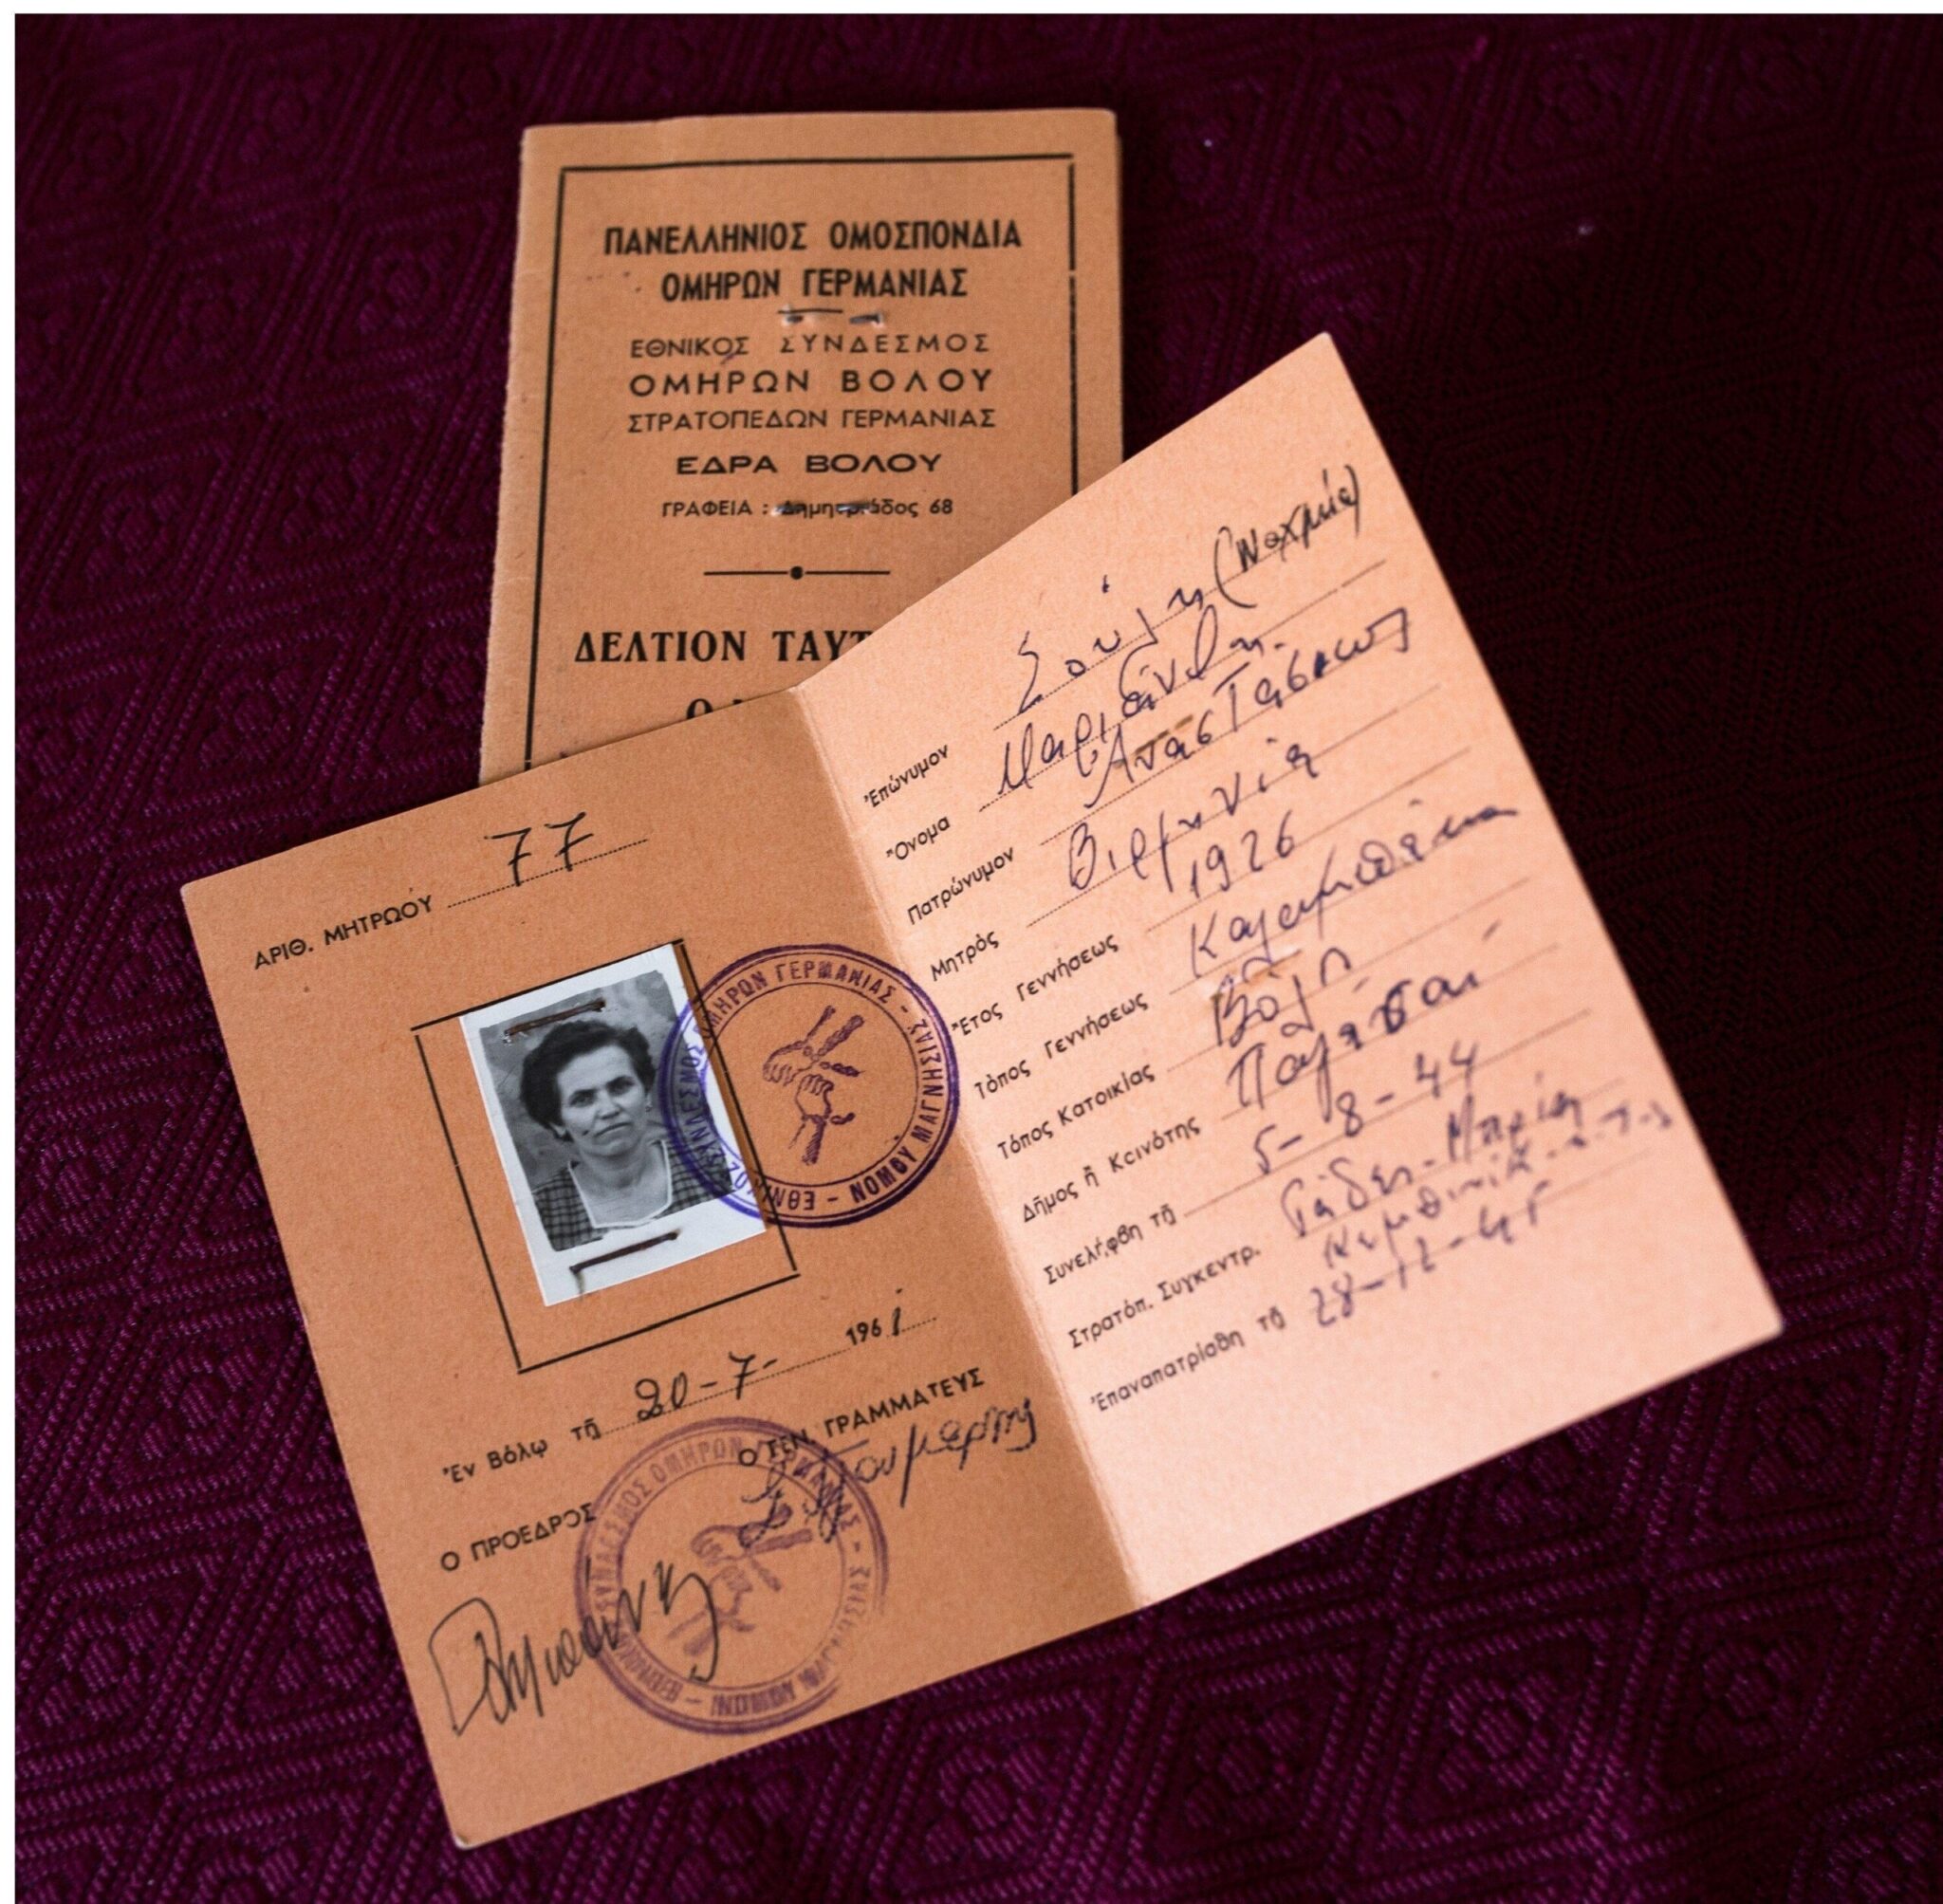 ΠΑΝΕΛΛΗΝΙΟΣ ΟΜΟΣΠΟΝΔΙΑ
ΟΜΗΡΩΝ ΓΕΡΜΑΝΙΑΣ
ΕΘΝΙΚΟΣ ΣΥΝΔΕΣΜΟΣ
ΟΜΗΡΩΝ ΒΟΛΟΥ
ΣΤΡΑΤΟΠΕΔΩΝ ΓΕΡΜΑΝΙΑΣ
ΕΔΡΑ ΒΟΛΟΥ
ΓΡΑΦΕΙΑ : Δημητριάδος 68
ΔΕΛΤΙΟΝ ΤΑΥΤ
ΑΡΙΘ. ΜΗΤΡΩΟΥ 77
ΕΘΝΙΚΟΣ ΣΥΝΔΕΣΜΟΣ ΟΜΗΡΩΝ ΓΕΡΜΑΝΙΑΣ - ΝΟΜΟΥ ΜΑΓΝΗΣΙΑΣ
Ἐν Βόλῳ τῇ 20-7- 1961
Ο ΠΡΟΕΔΡΟΣ
Ο ΓΕΝ. ΓΡΑΜΜΑΤΕΥΣ
ΣΥΝΔΕΣΜΟΣ ΟΜΗΡΩΝ ΓΕΡΜΑΝΙΑΣ - ΝΟΜΟΥ ΜΑΓΝΗΣΙΑΣ
Ἐπώνυμον Σούλη
Ὄνομα Μαριάνθη
Πατρώνυμον Ἀναστάσιος
Μητρὸς Βιργινία
Ἔτος Γεννήσεως 1926
Τόπος Γεννήσεως Καλαμπάκα
Τόπος Κατοικίας Βόλο
Δῆμος ἢ Κοινότης Παγασαί
Συνελήφθη τῇ 5-8-44
Στρατόπ. Συγκεντρ.
Ἐπαναπατρίσθη τῇ 28-12-45